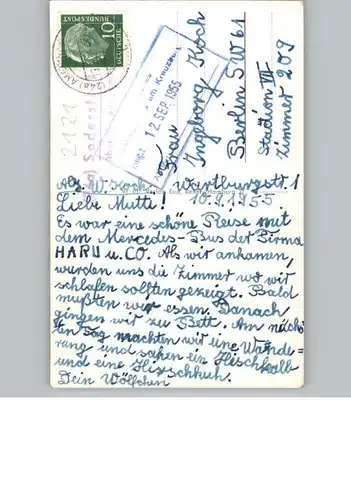 DEUTSCHE BUNDESPOST
10
(24a) AME
2121
Soderst
Am Kreuzberg
Eing.: 12. SEP. 1955
Frau
Ingeborg Koch
Berlin SW 61
Station III
Zimmer 209
Abs. W. Koch
Wartburgstr. 1
10.9.1955
Liebe Mutti!
Es war eine schöne Reise mit
dem Mercedes-Bus der Firma
HARU u. CO. Als wir ankamen,
wurden uns die Zimmer wo wir
schlafen sollten gezeigt. Bald
mußten wir essen. Danach
gingen wir zu Bett. Am näch
ten Tag machten wir eine Wande=
rung und sahen ein Hirschkalb
und eine Hirschkuh.
Dein Wölfchen